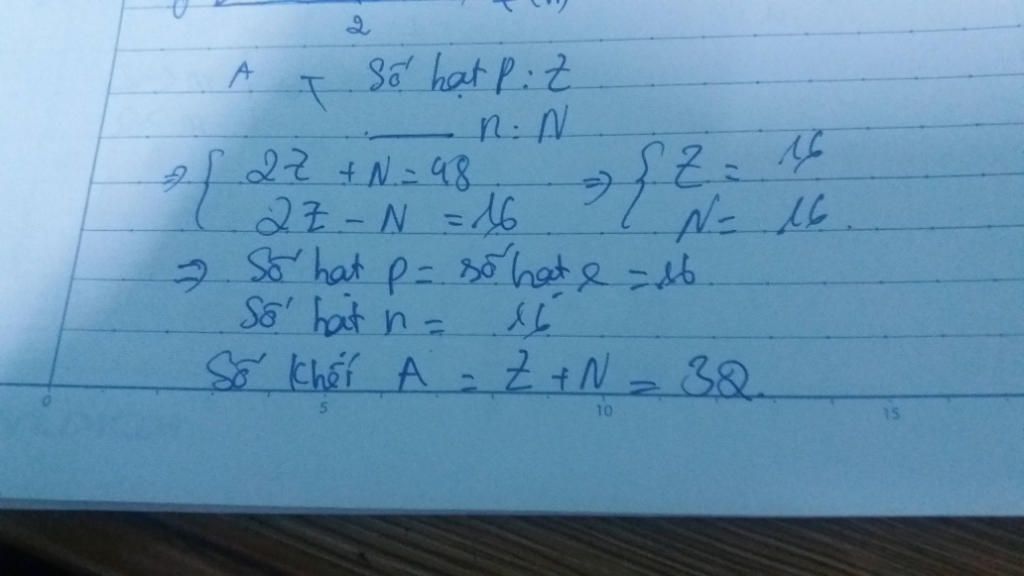 2
A Số hạt p: Z
n: N
=> { 2Z + N = 48 => { Z = 16
2Z - N = 16 N = 16.
=> Số hạt p = số hạt e = 16
Số hạt n = 16
Số khối A = Z + N = 32.
0 5 10 15